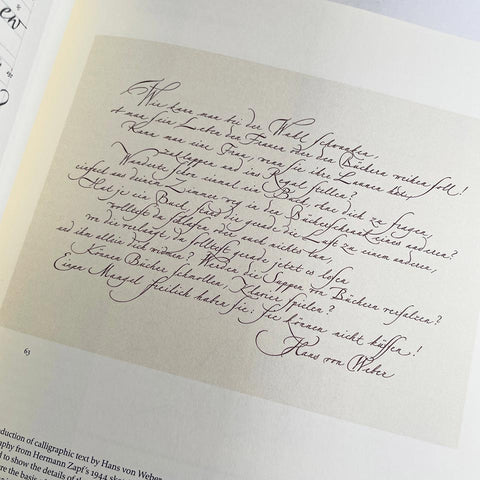 Wie kann man bei der Wahl schwanken,
ob man sein Leben den Frauen oder den Büchern weihen soll!
Kann man eine Frau, wenn sie ihre Launen hat,
zuklappen und ins Regal stellen?
Wanderte schon einmal ein Buch, ohne dich zu fragen,
einfach aus deinem Zimmer weg in den Bücherschrank eines anderen?
Hat je ein Buch, stand dir gerade die Lust zu einem anderen,
wolltest du schlafen oder auch nichts tun,
von dir verlangt, du solltest gerade jetzt es lesen
und ihm allein dich widmen? Werden die Suppen von Büchern versalzen?
Können Bücher schmollen, Klavier spielen?
Einen Mangel freilich haben sie: Sie können nicht küssen!
Hans von Weber
63
duction of calligraphic text by Hans von Weber
aphy from Hermann Zapf's 1944
d to show the details of
re the basis of